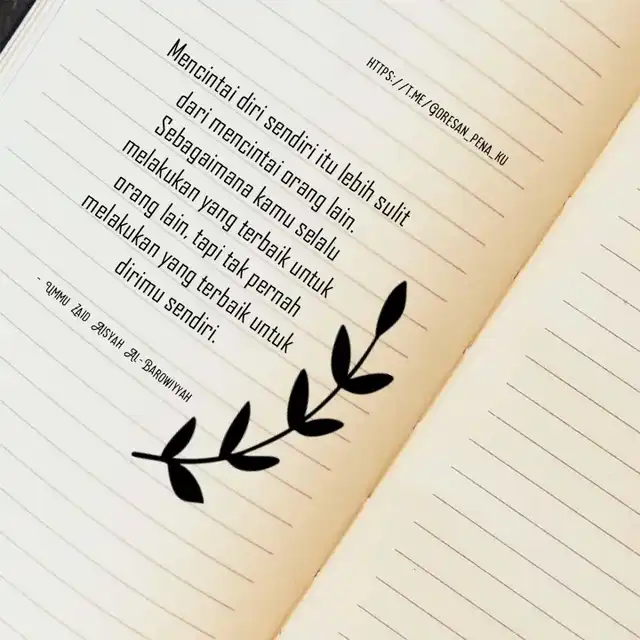 HTTPS://T.ME/GORESAN_PENA_KU
Mencintai diri sendiri itu lebih sulit
dari mencintai orang lain.
Sebagaimana kamu selalu
melakukan yang terbaik untuk
orang lain, tapi tak pernah
melakukan yang terbaik untuk
dirimu sendiri.
- Ummu Zaid Aisyah Al-Barowiyyah